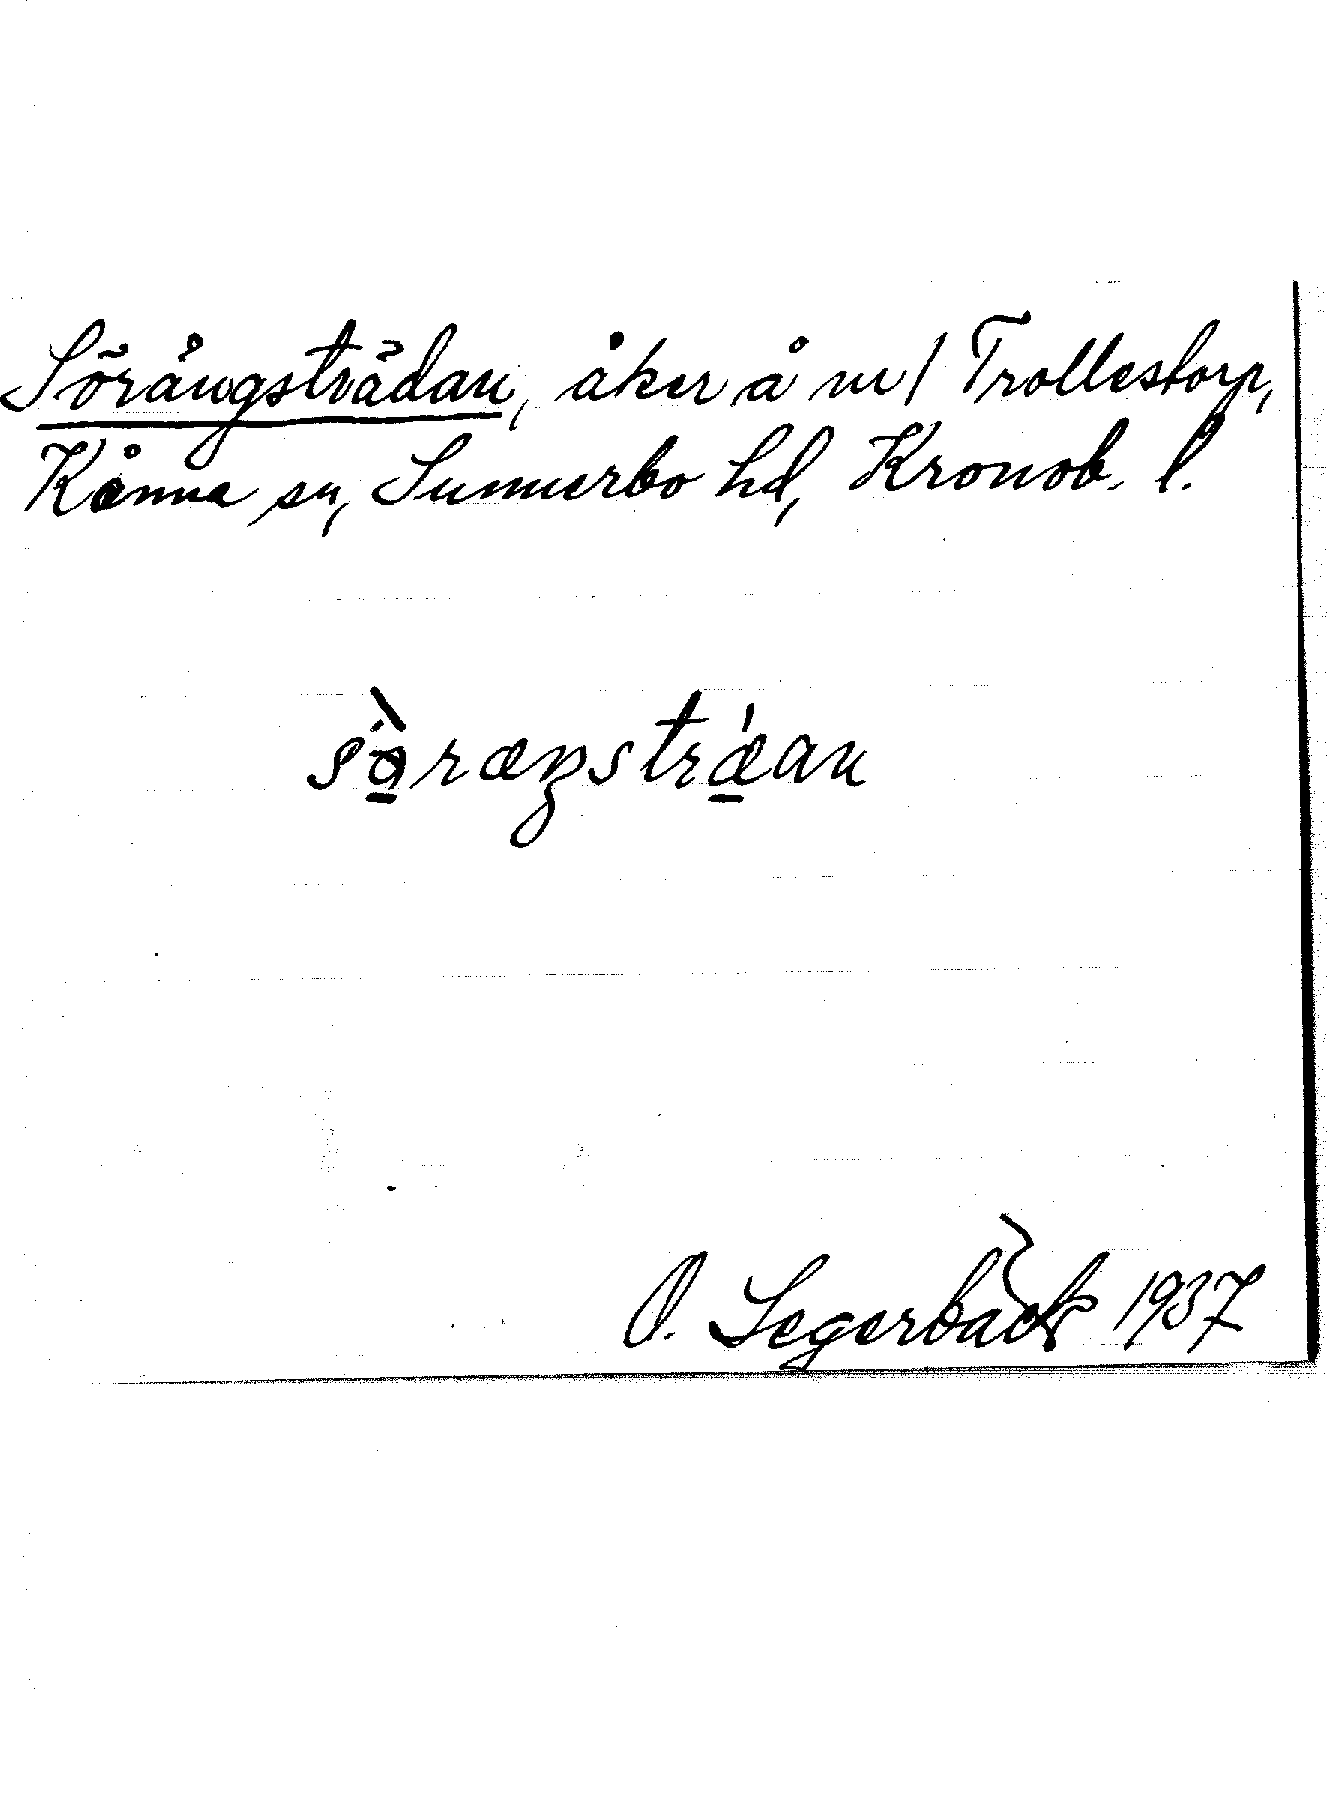 Sörängsträdan, åker å m/ Trollestorp,
Kånna sn, Sunnerbo hd, Kronob. l.
sö̀ræŋstrǽan
O. Segerbäck 1937